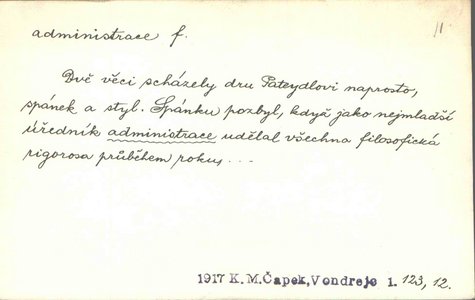 administrace f.
11.
Dvě věci scházely dru Pateydlovi naprosto,
spánek a styl. Spánku pozbyl, když jako nejmladší
úředník administrace udělal všechna filosofická
rigorosa průběhem roku, ...
1917 K.M.Čapek,Vondrejc 1. 123, 12.